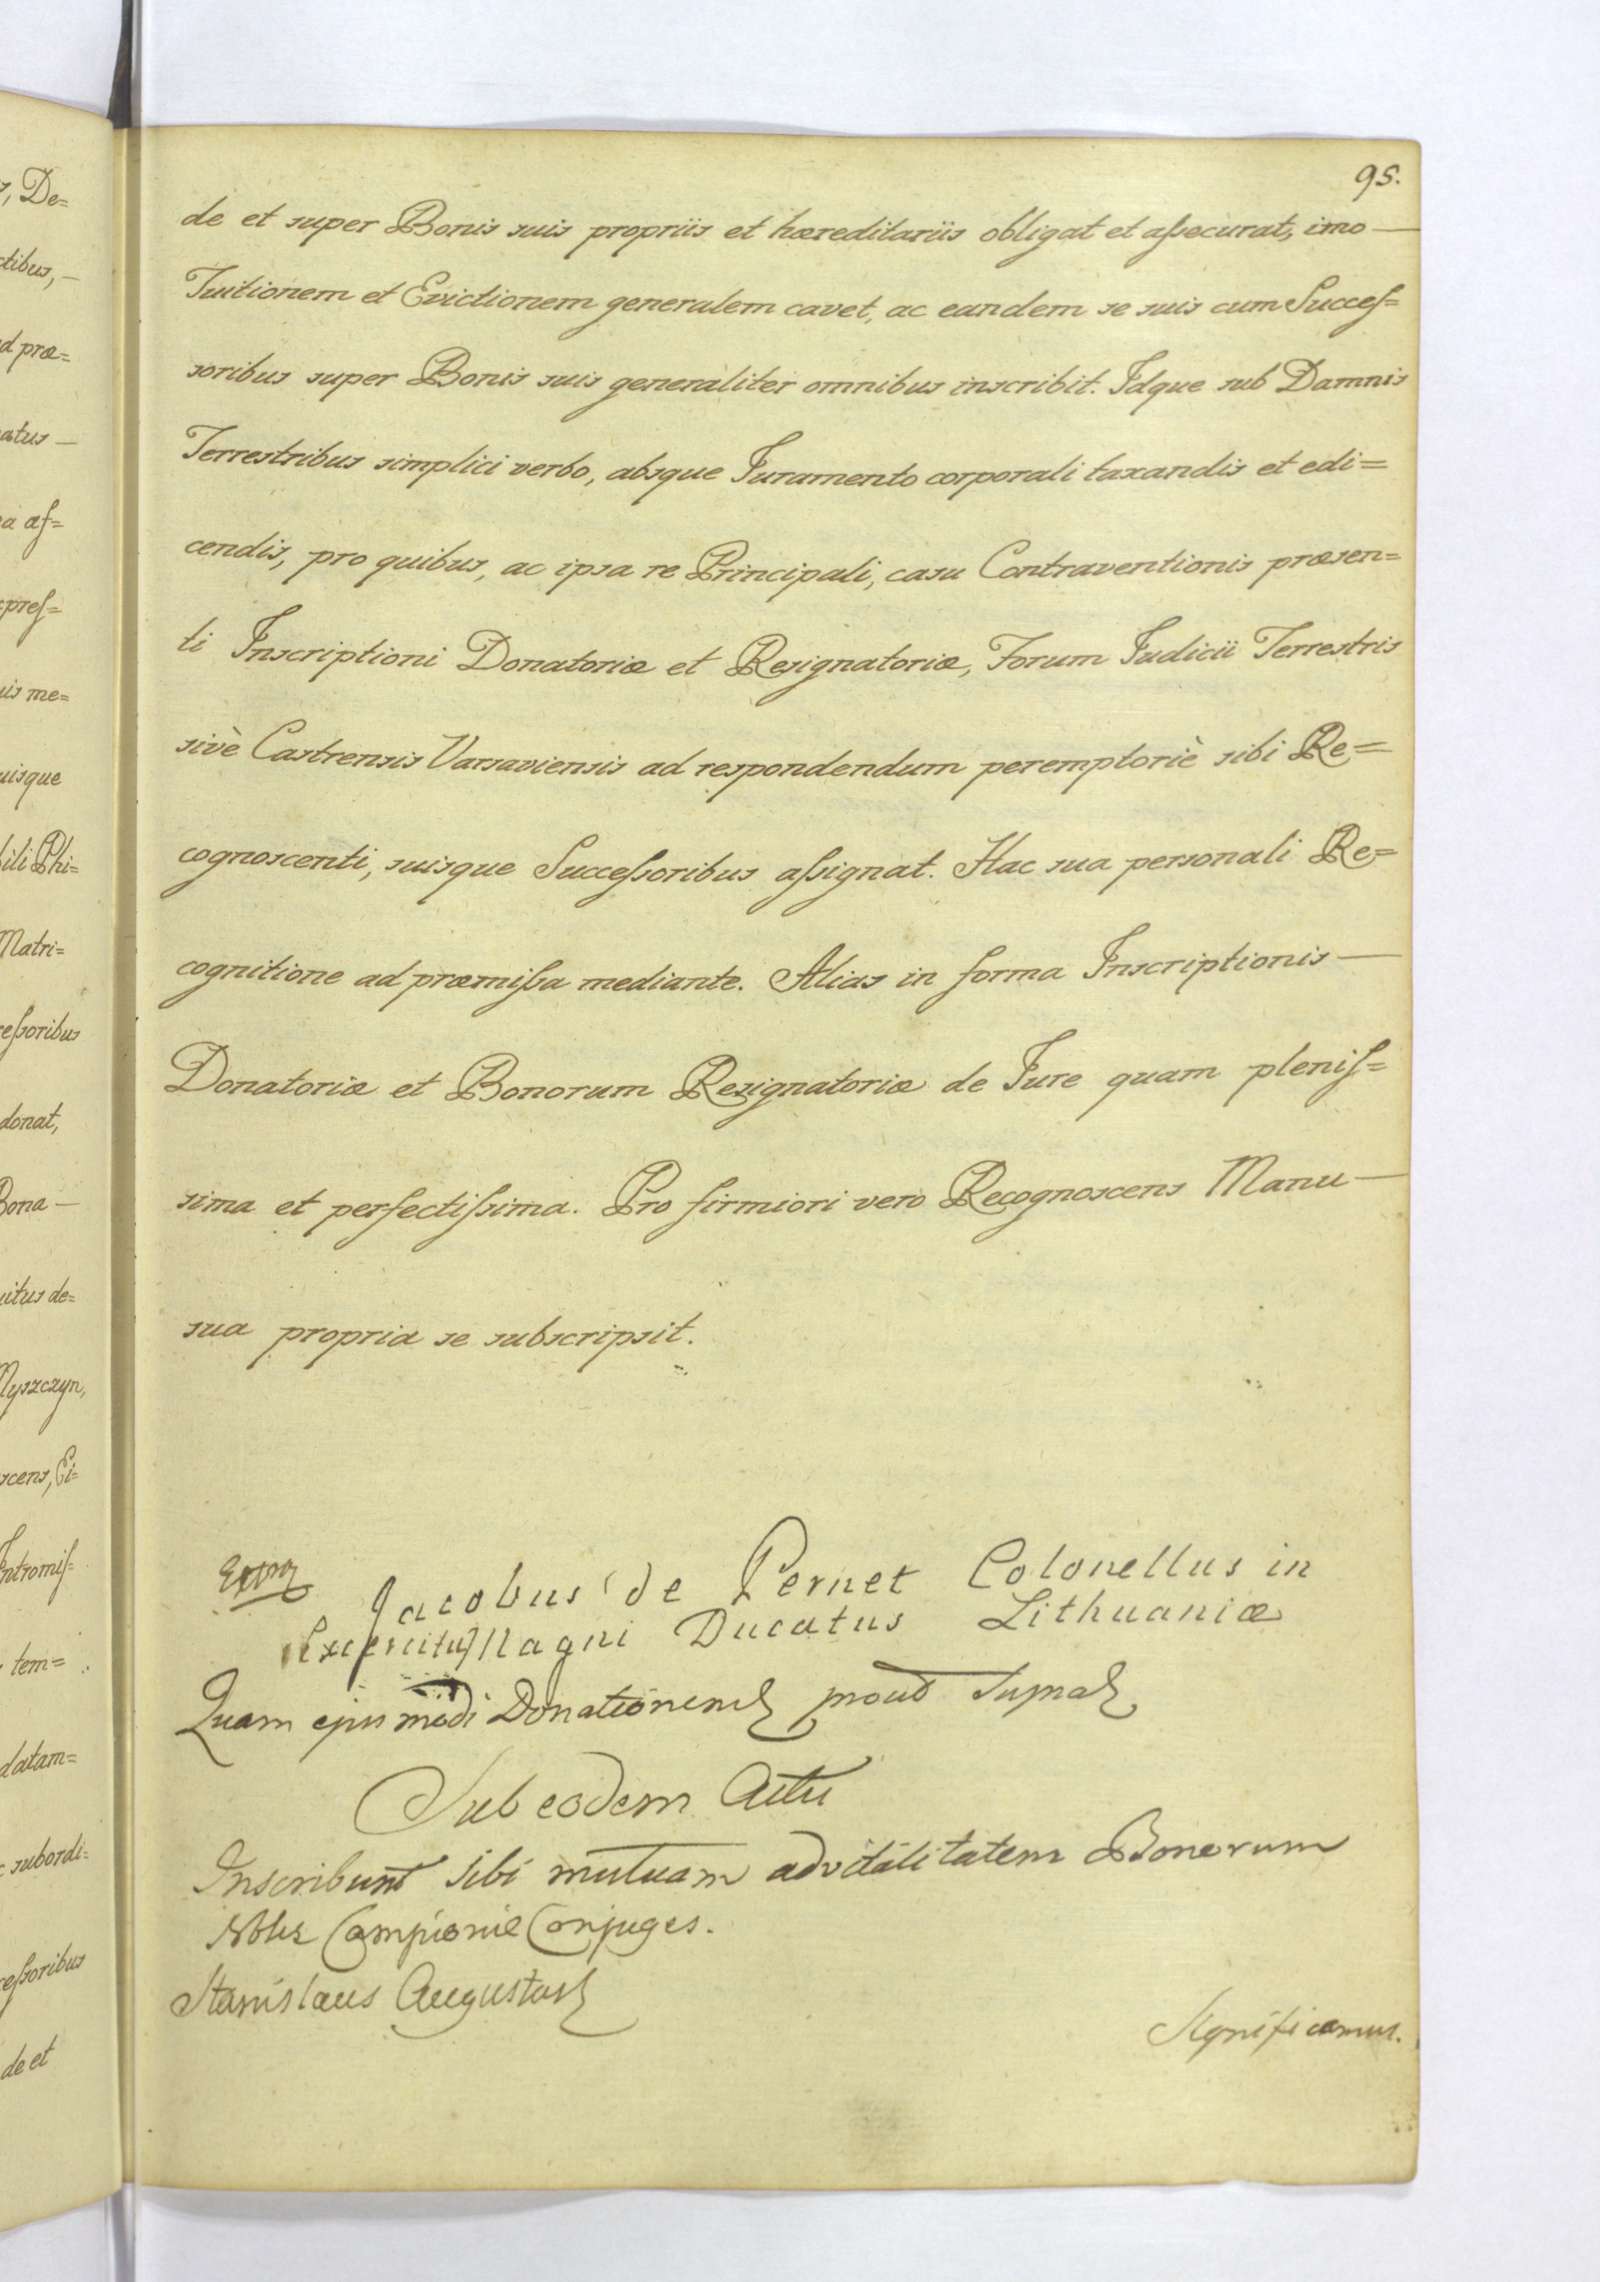 95.
de et super Bonis suis propriis et hæreditariis obligat et aſsecurat, imo —
Tuitionem et Evictionem generalem cavet, ac eandem se suis cum Succeſ=
soribus super Bonis suis generaliter omnibus inscribit. Idque sub Damnis
Terrestribus simplici verbo, absque Juramento corporali taxandis et edi=
cendis, pro quibus, ac ipsa re Principali, casu Contraventionis præsen=
ti Inscriptioni Donatoriæ et Resignatoriæ, Forum Judicii Terrestris
sivè Castrensis Varsaviensis ad respondendum peremptoriè sibi Re=
cognoscenti, suisque Succeſsoribus aſsignat. Hac sua personali Re=
cognitione ad præmiſsa mediante. Alias in forma Inscriptionis —
Donatoriæ et Bonorum Resignatoriæ de Jure quam pleniſ=
sima et perfectiſsima. Pro firmiori vero Recognoscens Manu —
sua propria se subscripsit.
Jacobus de Pernet Colonellus in
Exercitu Magni Ducatus Lithuaniæ
Quam ejusmodi Donationem prout supra
Sub eodem Actu
Inscribunt sibi mutuam advitalitatem Bonorum
Nobles Campioni Conjuges.
Stanislaus Augustus
Significamus.
s, De=
ctibus, —
d præ=
atus —
a aſ=
preſ=
is me=
uisque
bili Phi=
Matri=
ceſsoribus
donat,
Bona —
uitus de=
Myszczyn,
scens, Ei=
Intromiſ=
tem=
datam=
subordi=
ceſsoribus
de et